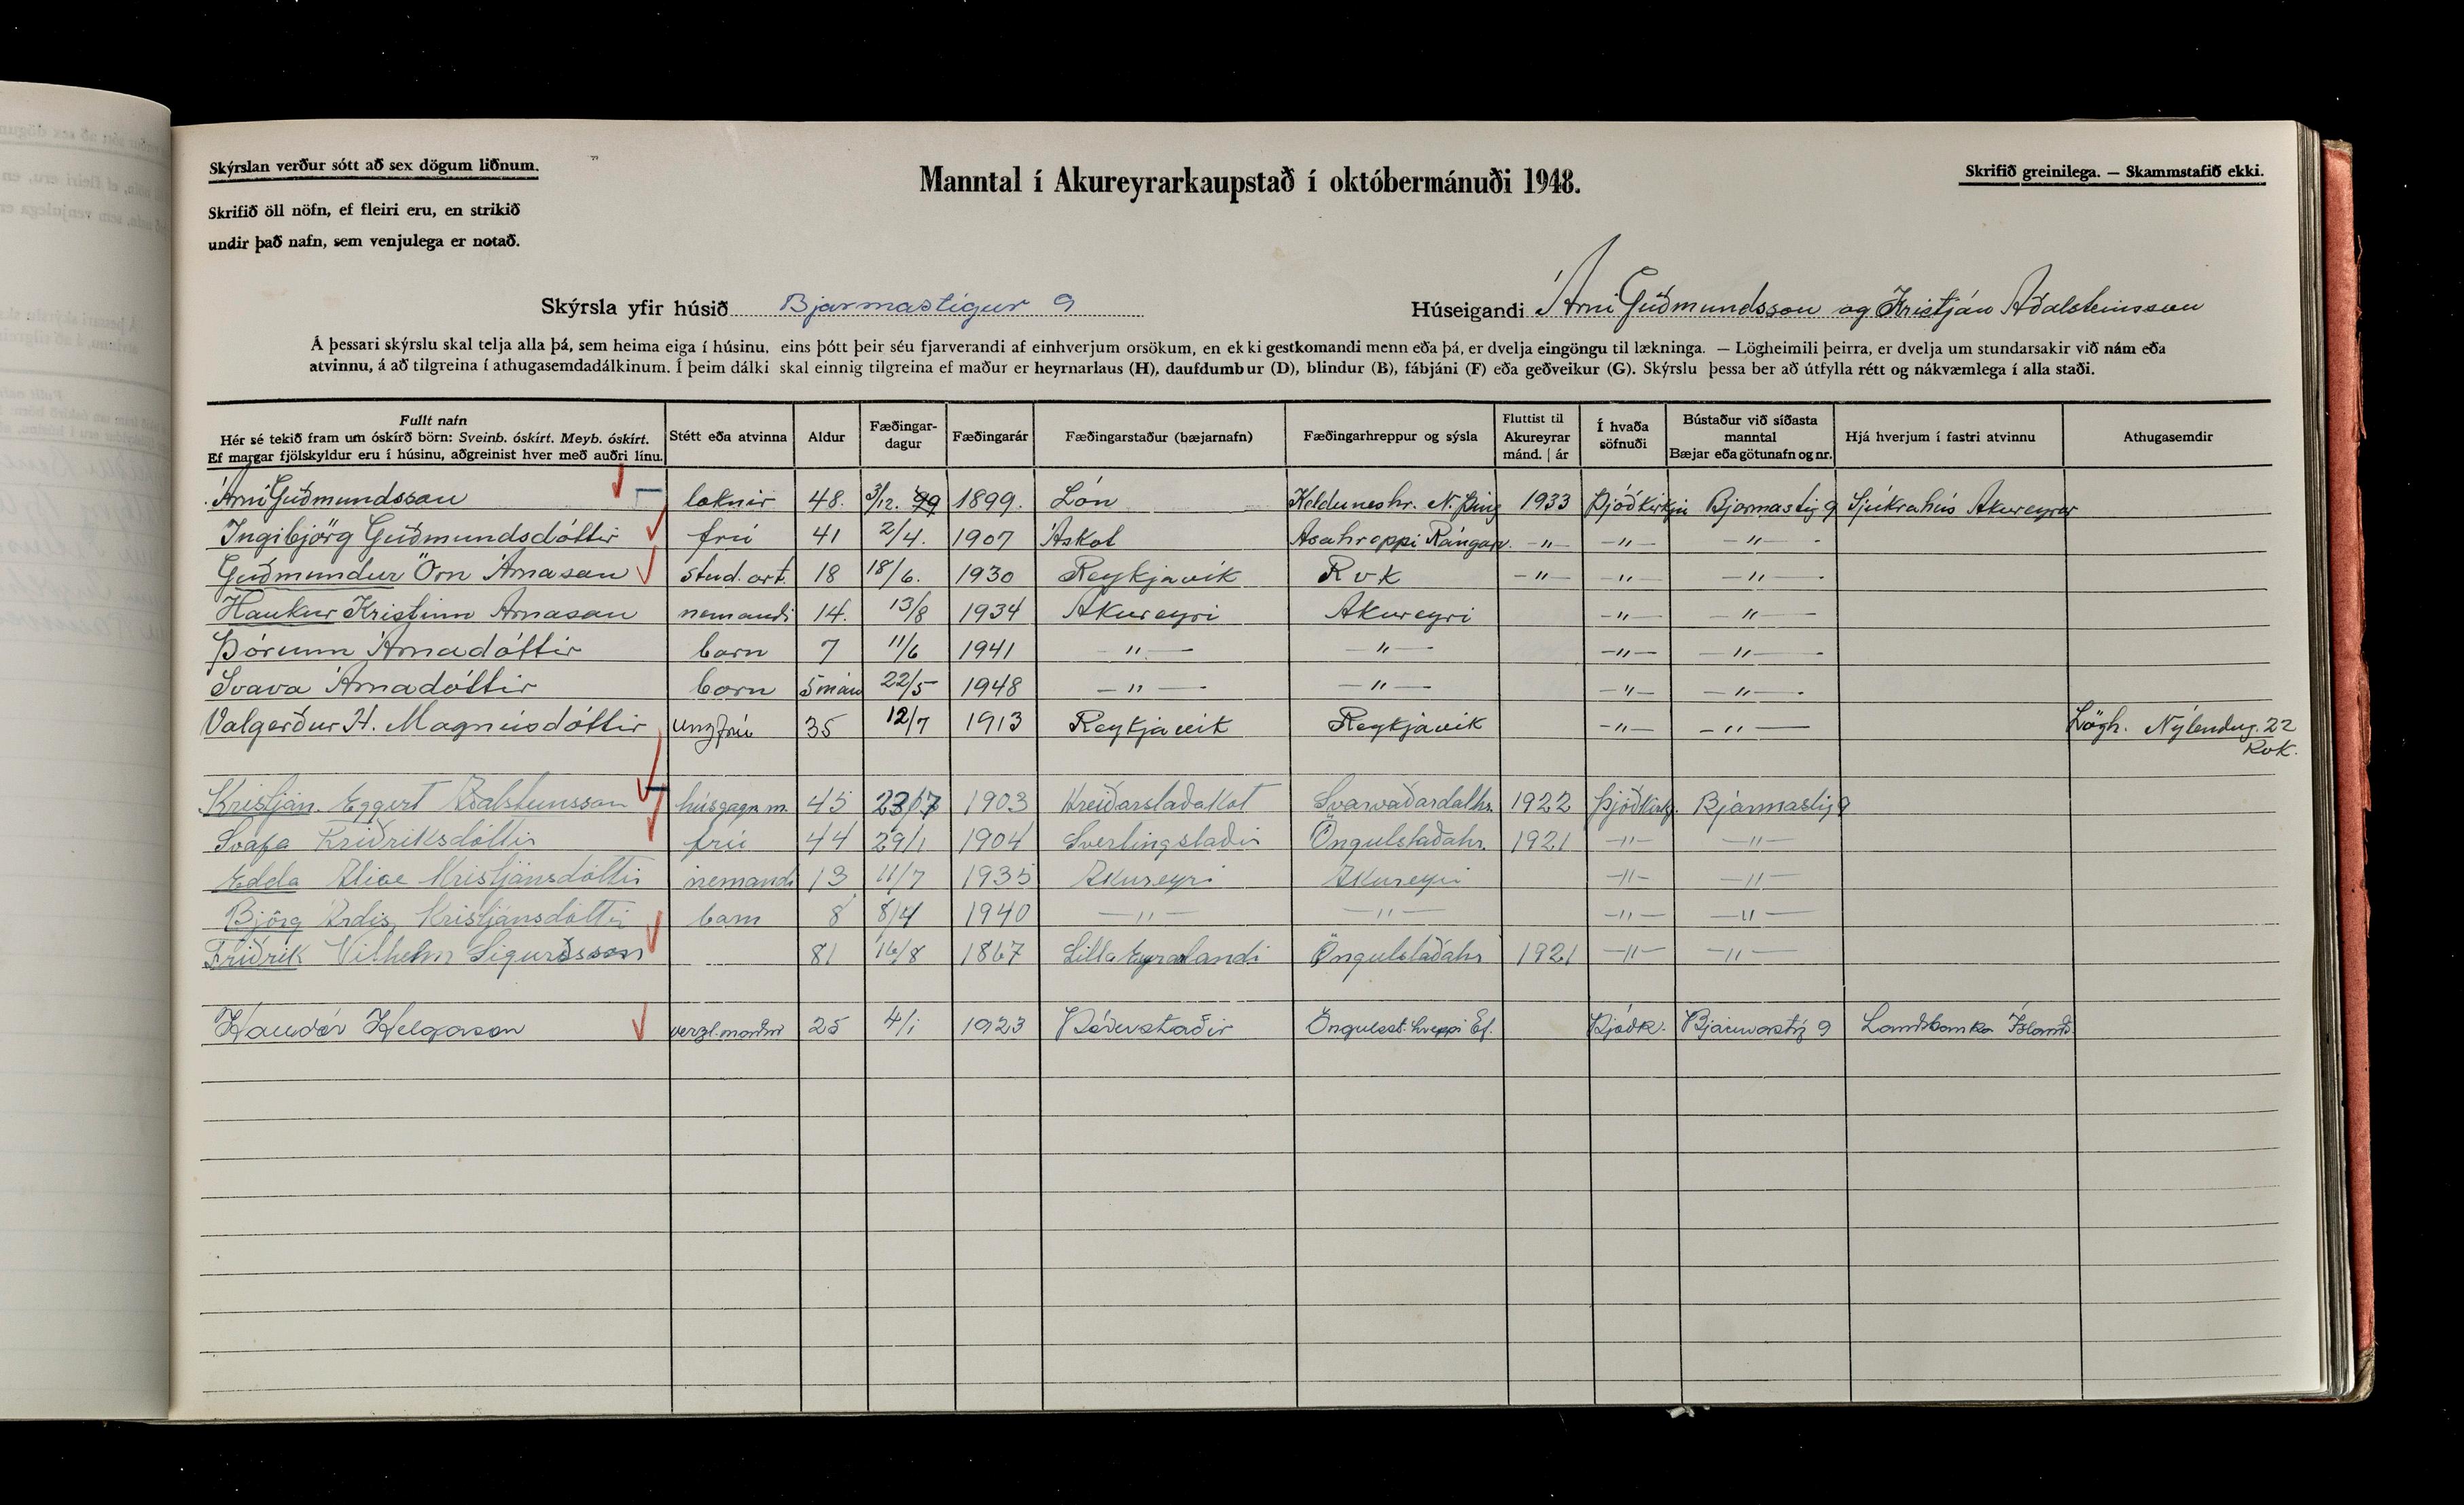 Skýrslan verður sótt að sex dögum liðnum.
Skrifið öll nöfn, ef fleiri eru, en strikið
undir það nafn, sem venjulega er notað.
Manntal í Akureyrarkaupstað í októbermánuði 1948.
Skrifið greinilega. — Skammstafið ekki.
Skýrsla yfir húsið Bjarmastígur 9
Húseigandi Árni Guðmundsson og Kristján Aðalsteinsson
Á þessari skýrslu skal telja alla þá, sem heima eiga í húsinu, eins þótt þeir séu fjarverandi af einhverjum orsökum, en ekki gestkomandi menn eða þá, er dvelja eingöngu til lækninga. — Lögheimili þeirra, er dvelja um stundarsakir við nám eða
atvinnu, á að tilgreina í athugasemdadálkinum. Í þeim dálki skal einnig tilgreina ef maður er heyrnarlaus (H), daufdumbur (D), blindur (B), fábjáni (F) eða geðveikur (G). Skýrslu þessa ber að útfylla rétt og nákvæmlega í alla staði.
Fullt nafn
Hér sé tekið fram um óskírð börn: Sveinb. óskírt. Meyb. óskírt.
Ef margar fjölskyldur eru í húsinu, aðgreinist hver með auðri línu.
Stétt eða atvinna
Aldur
Fæðingar-
dagur
Fæðingarár
Fæðingarstaður (bæjarnafn)
Fæðingarhreppur og sýsla
Fluttist til
Akureyrar
mánd. | ár
Í hvaða
söfnuði
Bústaður við síðasta
manntal
Bæjar eða götunafn og nr.
Hjá hverjum í fastri atvinnu
Athugasemdir
Árni Guðmundsson læknir 48. 3/12. 1899. Lón Kelduneshr. N. Þing 1933 Þjóðkirkju Bjarmastíg 9 Sjúkrahús Akureyrar
Ingibjörg Guðmundsdóttir frú 41 2/4. 1907 Áskot Ásahreppi Rángár. -"- -"- -"-
Guðmundur Örn Árnason stud. art. 18 18/6. 1930 Reykjavík Rvk -"- -"- -"-
Haukur Kristinn Árnason nemandi 14. 13/8 1934 Akureyri Akureyri -"- -"-
Þórunn Árnadóttir barn 7 11/6 1941 -"- -"- -"- -"-
Svava Árnadóttir barn 5 mán 22/5 1948 -"- -"- -"- -"-
Valgerður H. Magnúsdóttir ungfrú 35 12/7 1913 Reykjavík Reykjavík -"- -"- Lögh. Nýlendug. 22
Rvk.
Kristján Eggert Aðalsteinsson húsgagn.m. 45 23/7 1903 Kreiðarstaðakot Svarvaðardalhr. 1922 Þjóðkirkj. Bjarmastíg 9
Svafa Friðriksdóttir frú 44 29/1 1904 Sverlingstaðir Öngulstaðahr. 1921 -"- -"-
Edda Alice Kristjánsdóttir nemandi 13 11/7 1935 Akureyri Akureyri -"- -"-
Björg Ardís Kristjánsdóttir barn 8 8/4 1940 -"- -"- -"- -"-
Friðrik Vilhelm Sigurðsson 81 16/8 1867 Litla Eyralandi Öngulstaðahr 1921 -"- -"-
Helgason verzl.maður 25 4/1 1923 Þórustaðir Öngulsst.hreppi Ef. Þjóðk. Bjarmastíg 9 Landsbanka Íslands